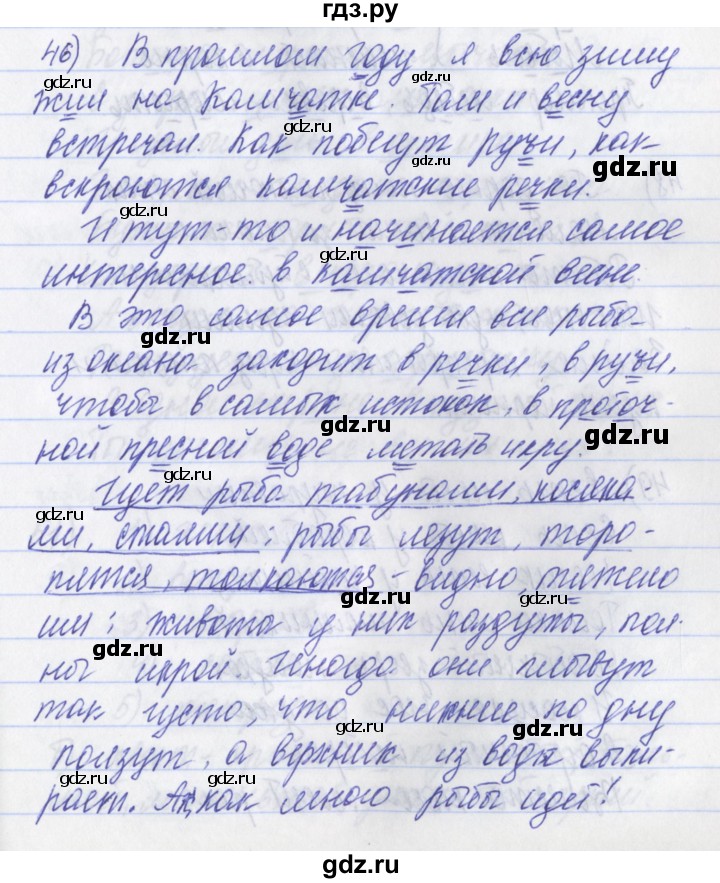 гдз.ру
46) В прошлом году я всю зиму
gdz.ru
gdz.ru
жил на Камчатке. Там и весну
gdz.ru
встречал. Как побегут ручьи, как
gdz.ru
вскроются камчатские речки.
gdz.ru
И тут-то и начинается самое
интересное в камчатской весне.
gdz.ru
В это самое время вся рыба
gdz.ru
из океана заходит в речки, в ручьи,
gdz.ru
чтобы в самых истоках, в проточ-
gdz.ru
gdz.ru
ной пресной воде метать икру.
gdz.ru
Идёт рыба табунами, косяка
gdz.ru
ми, стаями: рыбы лезут, торо-
gdz.ru
пятся, толкаются - видно тяжело
gdz.ru
им: живота у них раздуты, пол-
gdz.ru
ны икрой. Иногда они плывут
gdz.ru
так густо, что нижние по дну
gdz.ru
gdz.ru
ползут, а верхних из воды выпи-
gdz.ru
рает. Ах, как много рыбы идёт!
gdz.ru
gdz.ru